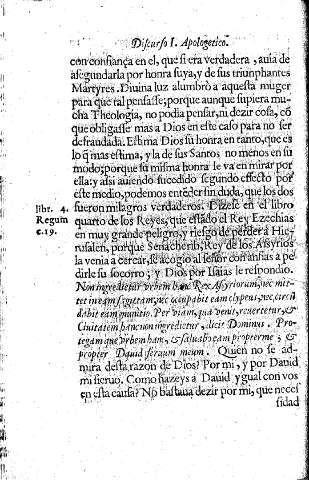 Discurso I. Apologetico.
con confiança en el, que si era verdadera, auia de
asegundarla por honra suya, y de sus triunphantes
Martyres. Diuina luz alumbrò a aquesta muger
para que tal pensasse; porque aunque supiera mu-
cha Theologia, no podia pensar, ni dezir cosa, cõ
que obligasse mas a Dios en este caso para no ser
defraudada. Estima Dios su honra en tanto, que es
lo q̃ mas estima, y la de sus Santos no menos en su
modo; porque su misma honra le va en mirar por
ella: y asi auiendo sucedido segundo efecto por
este medio, podemos entẽder sin duda, que los dos
fueron milagros verdaderos. Dizese en el libro
quarto de los Reyes, que estãdo el Rey Ezechias
en muy grande peligro, y riesgo de perder a Hie-
rusalen, porque Senacherib, Rey de los Asyrios
la venia a cercar, se acogio al señor con ansias a pe-
dirle su socorro; y Dios por Isaias le respondio.
Non ingredietur vrbem hanc Rex Assyriorum, nec mit-
tet in eam sagittam, nec occupabit eam clypeus, nec circũ
dabit eam munitio. Per viam, qua venit, reuertetur, &
Ciuitatem hanc non ingredietur, dicit Dominus. Pro-
tegam que vrbem hanc, & saluabo eam propter me, &
propter Dauid seruum meum. Quien no se ad-
mira desta razon de Dios? Por mi, y por Dauid
mi sieruo. Como hazeys a Dauid ygual con vos
en esta causa? No bastaua dezir por mi, que neces
sidad
libr. 4.
Regum
c. 19.